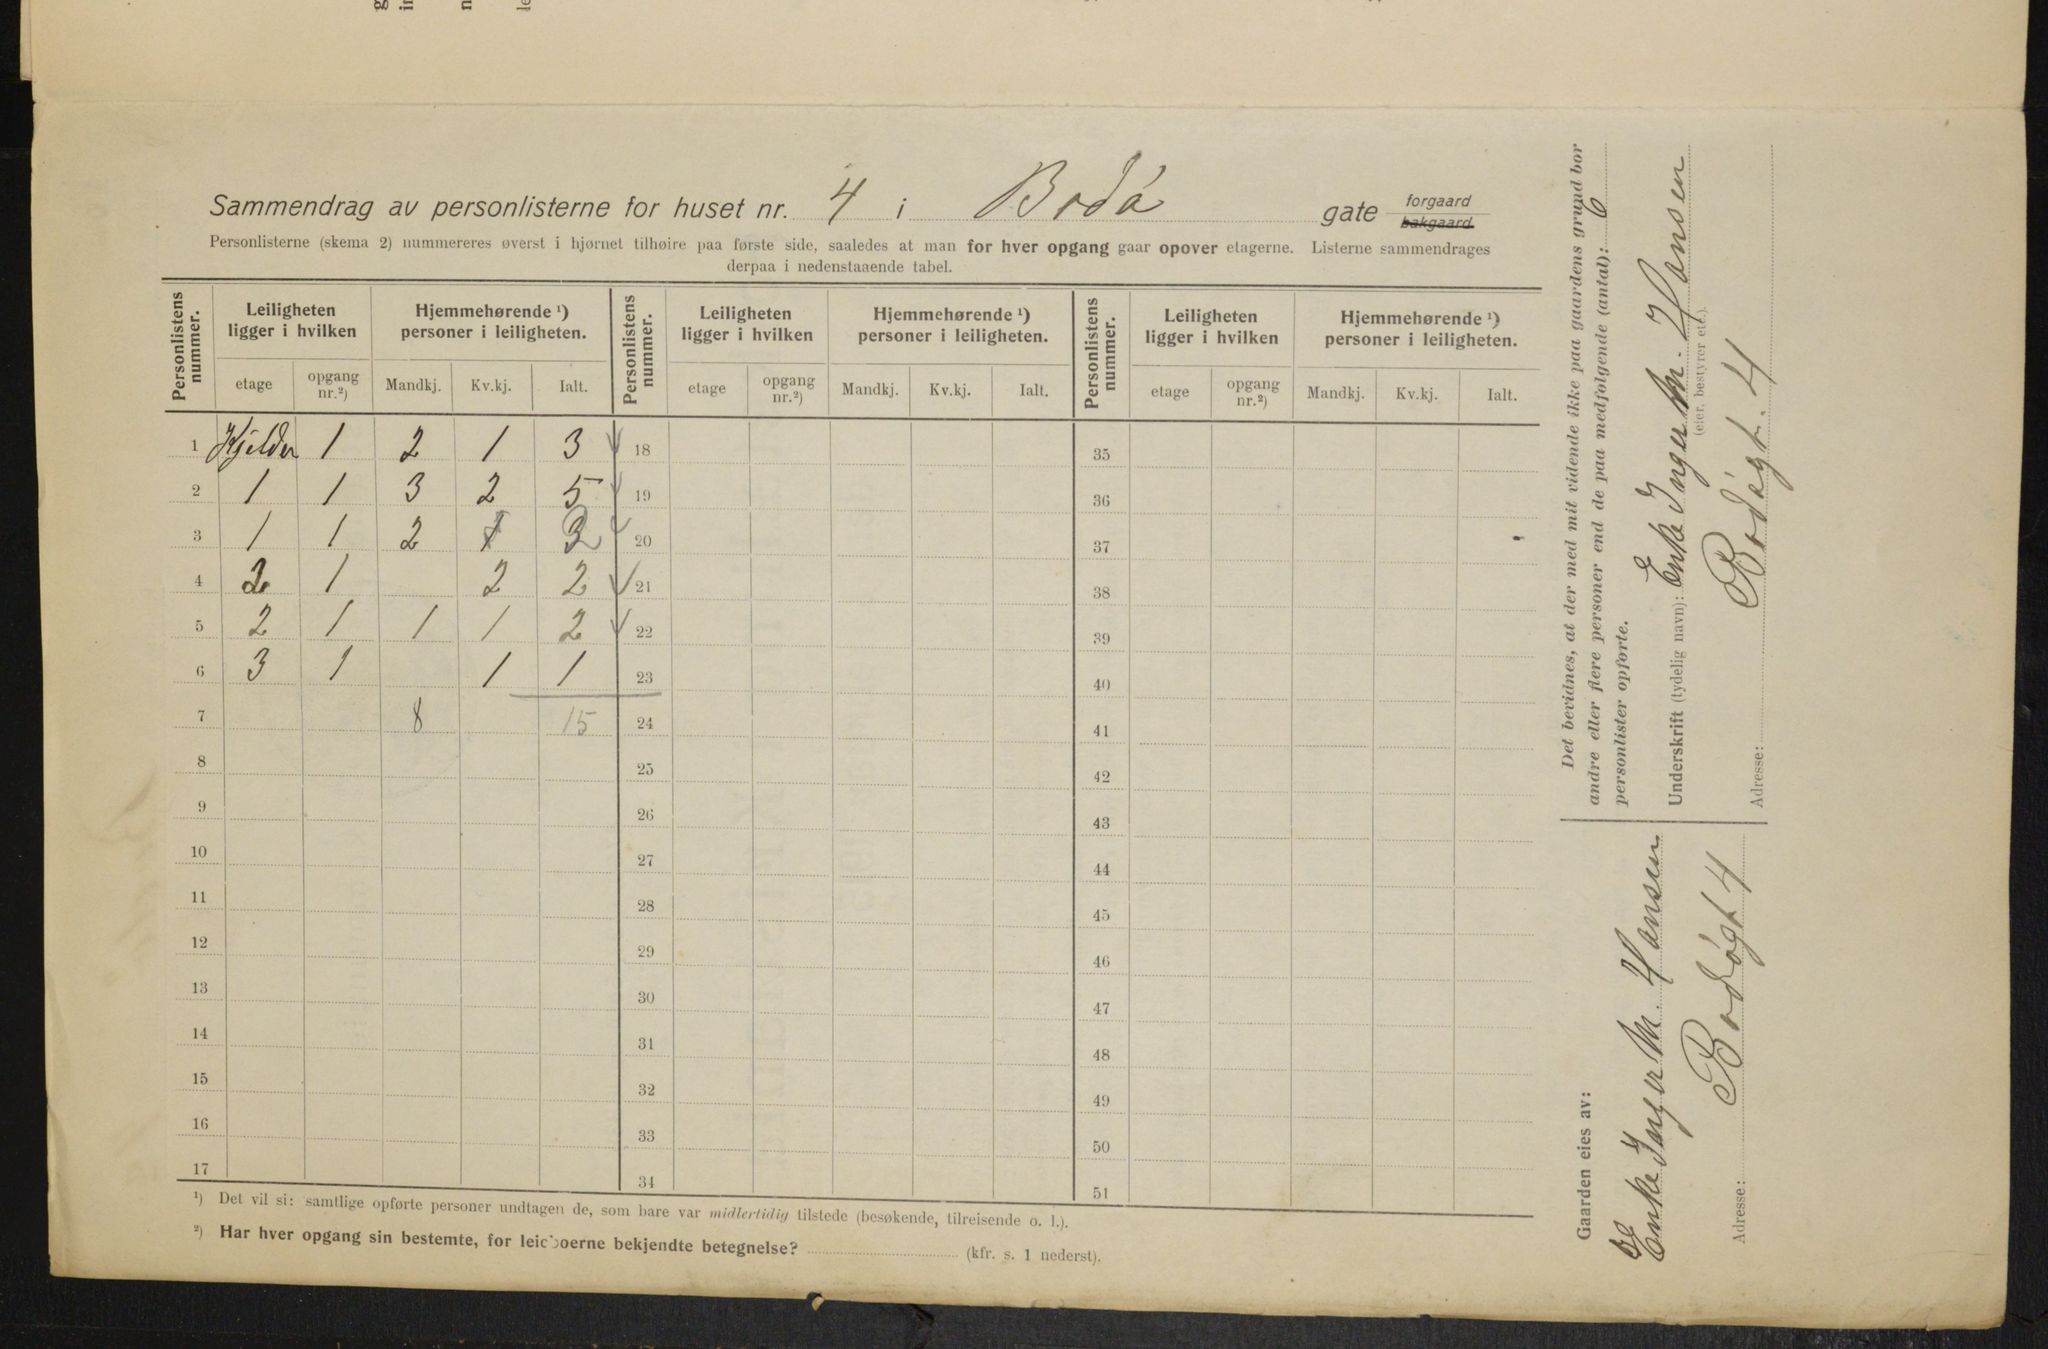 Sammendrag av personlisterne for huset nr. 4 i Bodó gate forgaard bakgaard.
Personlisterne (skema 2) nummereres øverst i hjørnet tilhøire paa første side, saaledes at man for hver opgang gaar opover etagerne. Listerne sammendrages
derpaa i nedenstaaende tabel.
Personlistens nummer. Leiligheten ligger i hvilken Hjemmehørende ¹) personer i leiligheten. Personlistens nummer. Leiligheten ligger i hvilken Hjemmehørende ¹) personer i leiligheten. Personlistens nummer. Leiligheten ligger i hvilken Hjemmehørende ¹) personer i leiligheten.
etage opgang nr.²) Mandkj. Kv.kj. Ialt. etage opgang nr.²) Mandkj. Kv.kj. Ialt. etage opgang nr.²) Mandkj. Kv.kj. Ialt.
1 Kjelder 1 2 1 3 18 35
2 1 1 3 2 5 19 36
3 1 1 2 1 2 20 37
4 2 1 2 2 21 38
5 2 1 1 1 2 22 39
6 3 1 1 1 23 40
7 8 15 24 41
8 25 42
9 26 43
10 27 44
11 28 45
12 29 46
13 30 47
14 31 48
15 32 49
16 33 50
17 34 51
¹) Det vil si: samtlige opførte personer undtagen de, som bare var midlertidig tilstede (besøkende, tilreisende o. l.).
²) Har hver opgang sin bestemte, for leieboerne bekjendte betegnelse? (kfr. s. 1 nederst).
Det bevidnes, at der med mit vidende ikke paa gaardens grund bor
andre eller flere personer end de paa medfølgende (antal): 6
personlister opførte.
Underskrift (tydelig navn): Enke Inger M. Hansen
(eier, bestyrer etc.).
Adresse: Bodógt. 4
Gaarden eies av:
Enke Inger M. Hansen
Adresse: Bodógt 4